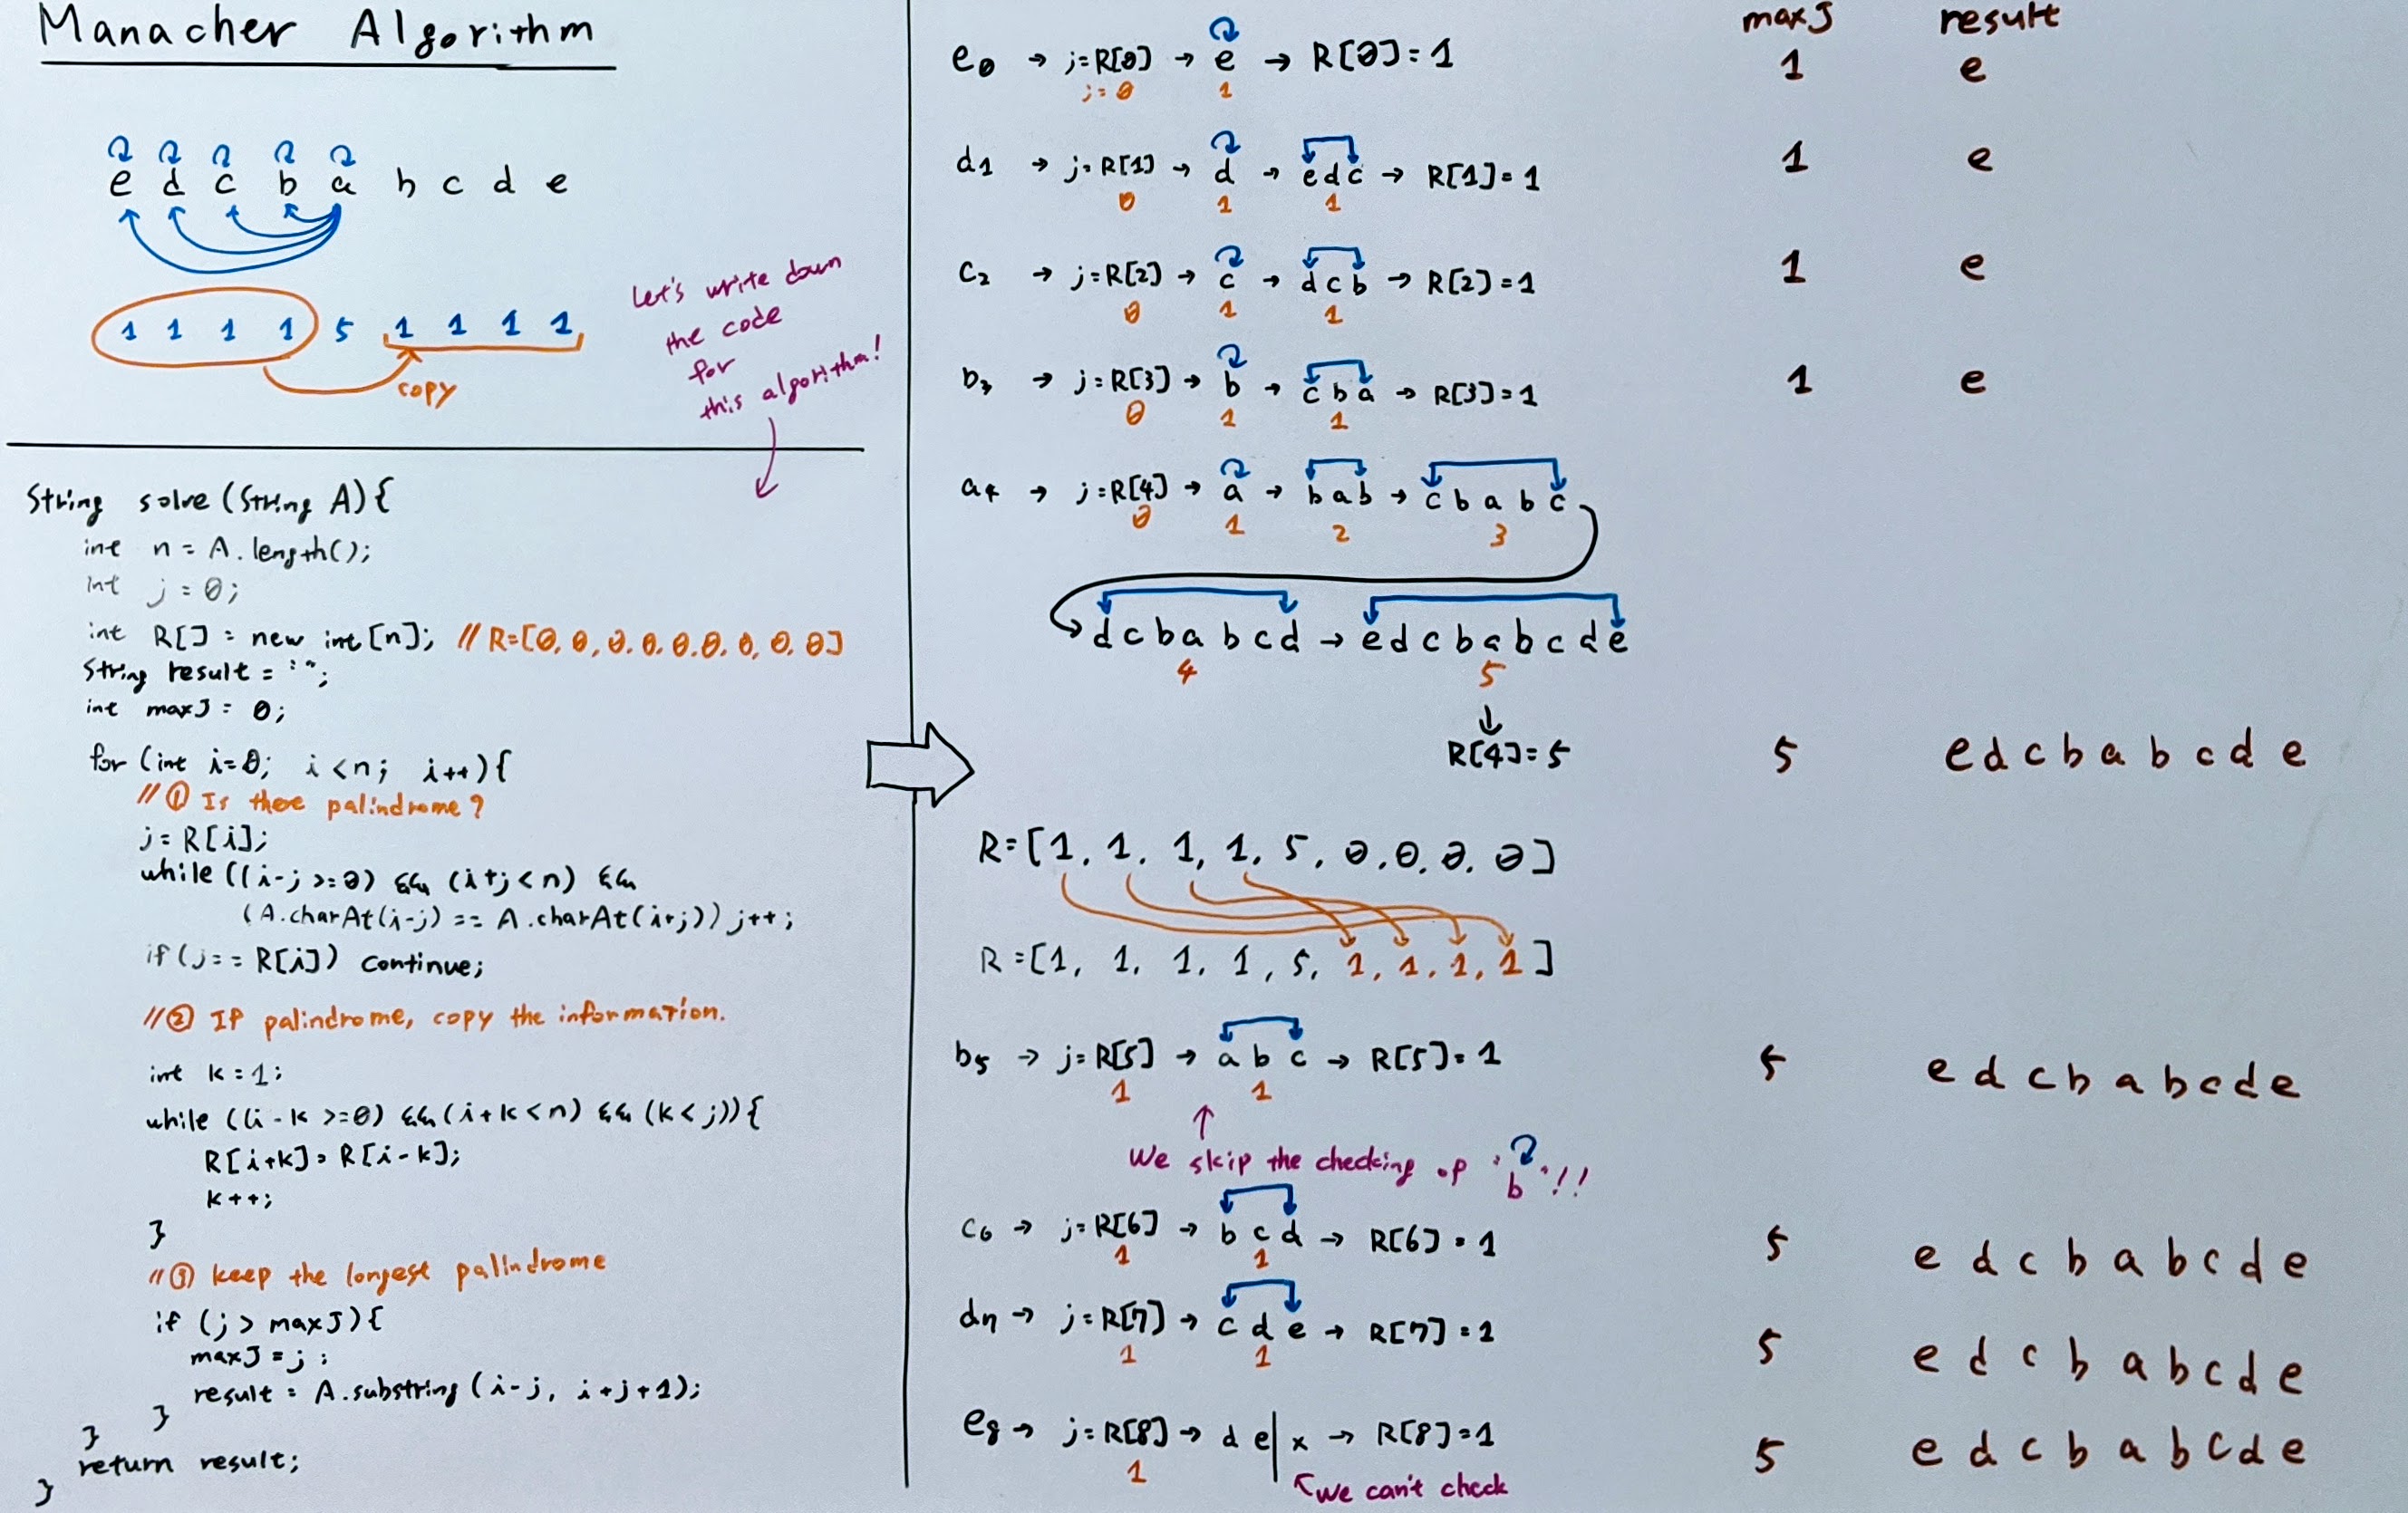 Manacher Algorithm
e d c b a b c d e
1 1 1 1 5 1 1 1 1
copy
Let's write down
the code
for
this algorithm!
String solve (String A){
int n = A.length();
int j = 0;
int R[] = new int[n]; // R=[0, 0, 0, 0, 0, 0, 0, 0, 0]
String result = "";
int maxJ = 0;
for (int i=0; i<n; i++){
// ① Is there palindrome?
j = R[i];
while ((i-j >=0) && (i+j < n) &&
(A.charAt(i-j) == A.charAt(i+j)) j++;
if (j == R[i]) continue;
// ② If palindrome, copy the information.
int k = 1;
while ((i - k >=0) && (i+k < n) && (k < j)){
R[i+k] = R[i-k];
k++;
}
// ③ keep the longest palindrome
if (j > maxJ){
maxJ = j;
result = A.substring (i-j, i+j+1);
}
}
return result;
}
maxJ result
e0 → j=R[0] → e → R[0]=1 1 e
j=0 1
d1 → j=R[1] → d → edc → R[1]=1 1 e
0 1 1
c2 → j=R[2] → c → dcb → R[2]=1 1 e
0 1 1
b3 → j=R[3] → b → cba → R[3]=1 1 e
0 1 1
a4 → j=R[4] → a → bab → c b a b c
0 1 2 3
→ d c b a b c d → e d c b a b c d e
4 5
↓
R[4]=5 5 e d c b a b c d e
R=[1, 1, 1, 1, 5, 0, 0, 0, 0]
R=[1, 1, 1, 1, 5, 1, 1, 1, 1]
b5 → j=R[5] → a b c → R[5]=1 5 e d c b a b c d e
1 1
We skip the checking of "b"!!
c6 → j=R[6] → b c d → R[6]=1 5 e d c b a b c d e
1 1
d7 → j=R[7] → c d e → R[7]=1 5 e d c b a b c d e
1 1
e8 → j=R[8] → d e | x → R[8]=1 5 e d c b a b c d e
1
we can't check